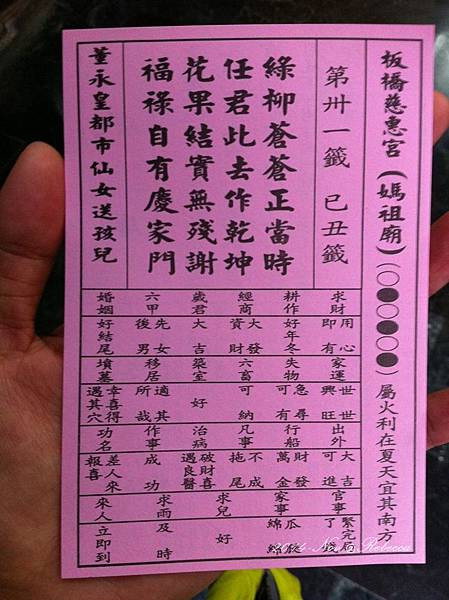 板橋慈惠宮(媽祖廟)(○●○●○●)屬火利在夏天宜其南方
第卅一籤 己丑籤
綠柳蒼蒼正當時
任君此去作乾坤
花果結實無殘謝
福祿自有慶家門
董永皇都市仙女送孩兒
求財 用心即有
耕作 好年冬
經商 大發資財
歲君 大吉
六甲 先女後男
婚姻 好結尾
家運 世世興旺
失物 急尋可有
六畜 可納
築室 好
移居 適其所哉
墳墓 幸喜得遇其穴
出外 大吉可進
行船 財發萬金
凡事 不成拖尾
治病 破財喜遇良醫
作事 成功
功名 差人來報喜
官事 緊完局了錢
家事 瓜瓞綿綿
求兒 好
求雨 及時
來人 立即到
Rebecca